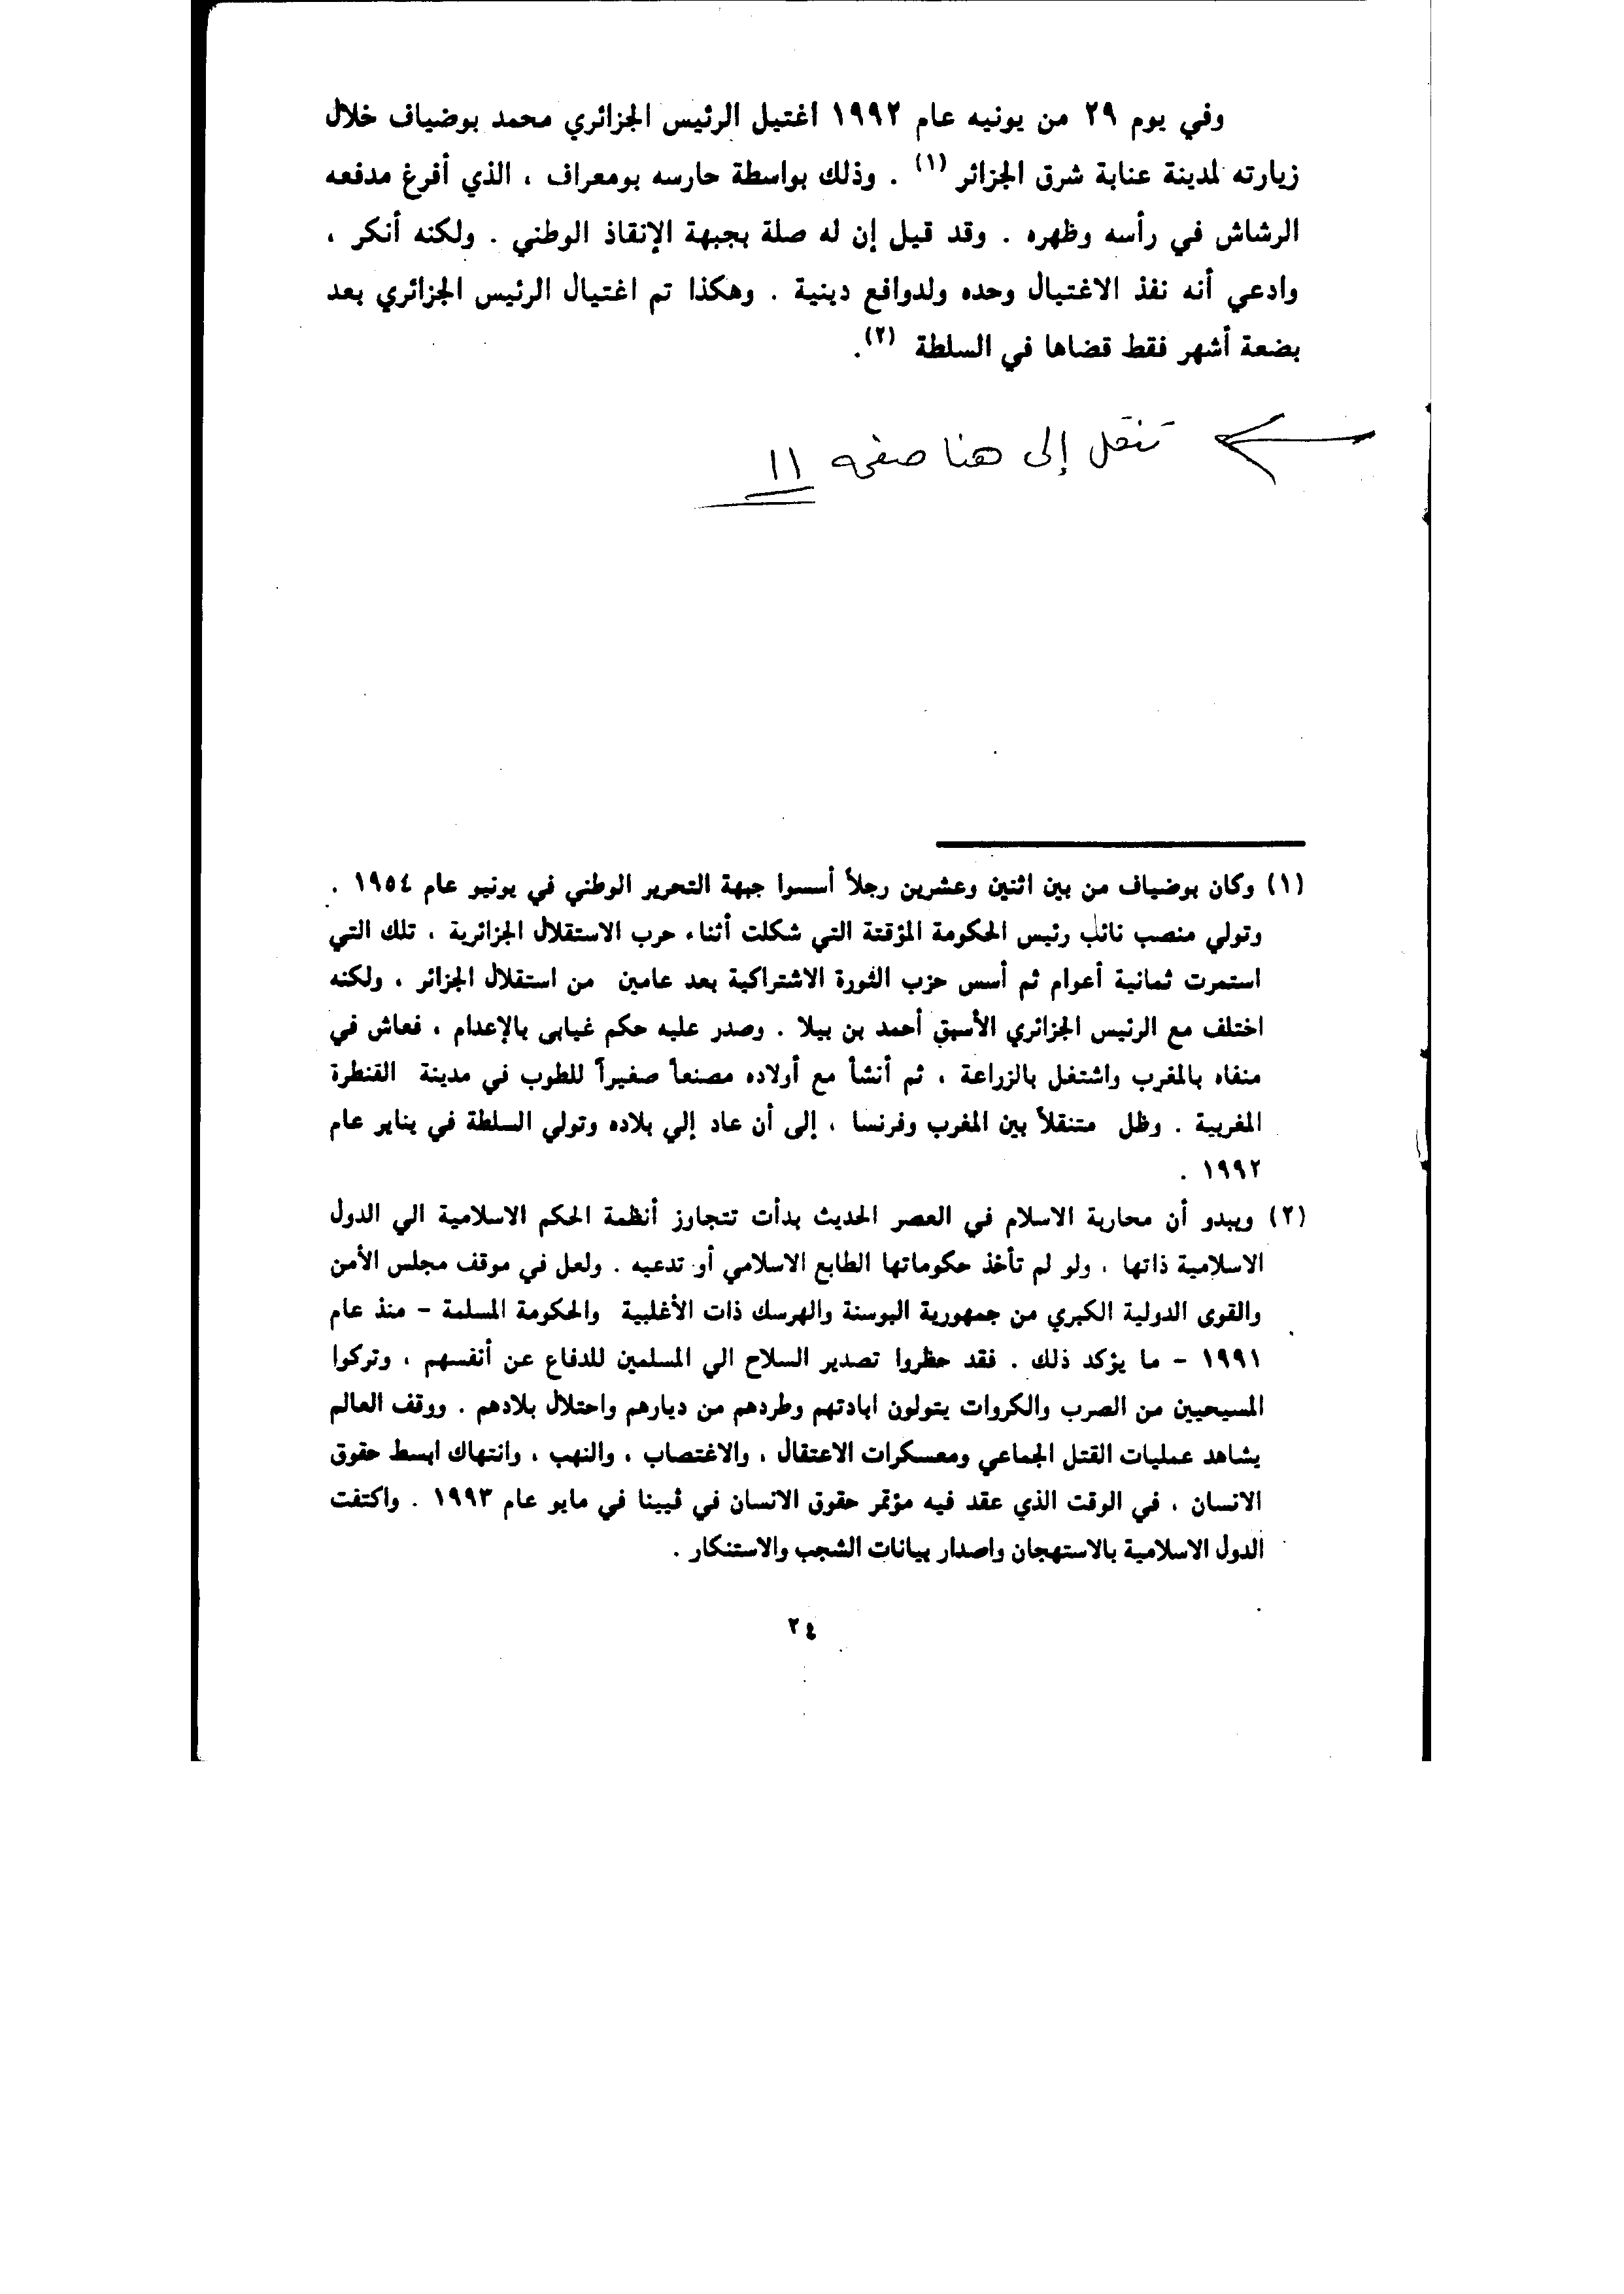 وفي يوم ٢٩ من يونيه عام ١٩٩٢ اغتيل الرئيس الجزائري محمد بوضياف خلال
زيارته لمدينة عنابة شرق الجزائر (١) . وذلك بواسطة حارسه بومعراف ، الذي أفرغ مدفعه
الرشاش في رأسه وظهره . وقد قيل إن له صلة بجبهة الإنقاذ الوطني . ولكنه أنكر ،
وادعي أنه نفذ الاغتيال وحده ولدوافع دينية . وهكذا تم اغتيال الرئيس الجزائري بعد
بضعة أشهر فقط قضاها في السلطة (٢).
تنقل إلى هنا صفحه ١١
(١) وكان بوضياف من بين اثنين وعشرين رجلاً أسسوا جبهة التحرير الوطني في يونيو عام ١٩٥٤ .
وتولي منصب نائب رئيس الحكومة المؤقتة التي شكلت أثناء حرب الاستقلال الجزائرية ، تلك التي
استمرت ثمانية أعوام ثم أسس حزب الثورة الاشتراكية بعد عامين من استقلال الجزائر ، ولكنه
اختلف مع الرئيس الجزائري الأسبق أحمد بن بيلا . وصدر عليه حكم غيابى بالإعدام ، فعاش في
منفاه بالمغرب واشتغل بالزراعة ، ثم أنشأ مع أولاده مصنعاً صغيراً للطوب في مدينة القنطرة
المغربية . وظل متنقلاً بين المغرب وفرنسا ، إلى أن عاد إلي بلاده وتولي السلطة في يناير عام
١٩٩٢ .
(٢) ويبدو أن محاربة الاسلام في العصر الحديث بدأت تتجاوز أنظمة الحكم الاسلامية الي الدول
الاسلامية ذاتها ، ولو لم تأخذ حكوماتها الطابع الاسلامي أو تدعيه . ولعل في موقف مجلس الأمن
والقوى الدولية الكبري من جمهورية البوسنة والهرسك ذات الأغلبية والحكومة المسلمة - منذ عام
١٩٩١ - ما يؤكد ذلك . فقد حظروا تصدير السلاح الي المسلمين للدفاع عن أنفسهم ، وتركوا
المسيحيين من الصرب والكروات يتولون ابادتهم وطردهم من ديارهم واحتلال بلادهم . ووقف العالم
يشاهد عمليات القتل الجماعي ومعسكرات الاعتقال ، والاغتصاب ، والنهب ، وانتهاك ابسط حقوق
الانسان ، في الوقت الذي عقد فيه مؤتمر حقوق الانسان في ڤيينا في مايو عام ١٩٩٣ . واكتفت
الدول الاسلامية بالاستهجان واصدار بيانات الشجب والاستنكار .
٢٤